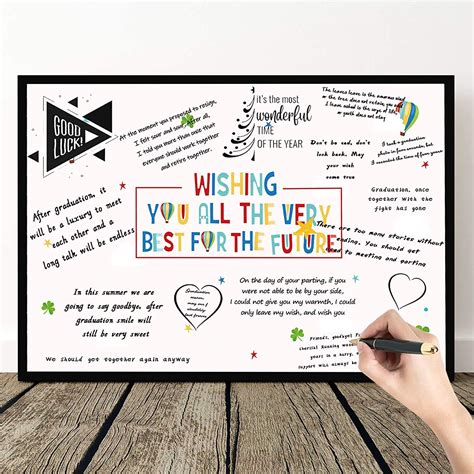 GOOD
LUCK!
At the moment you proposed to resign,
I felt sour and sour after all,
I told you more than once that
everyone should work together
and retire together.
it's the most
wonderful
TIME
OF THE YEAR
The leaves leave is the
or the tree does not retain, you
have asked is the ordinary of life,
or youth does not stay
Don't be sad, don't
look back. May
your wish
come true
I
cannot reach
I punched in front of youth
After graduation, it
will be a luxury to meet
each other and a
long talk will be endless
WISHING
YOU ALL THE VERY
BEST FOR THE FUTURE
Graduation, once
together with the
fight has gone
There are too many stories without
ending, You should get
used to meeting and parting
In this summer we are
going to say goodbye, after
graduation smile will
still be very sweet
Graduation
season, may
On the day of your parting, if you
were not able to be by your side,
I could not give you my warmth, I could
only leave my wish, and wish you
Friends, goodbye!
cherish! Running
years in a hurry,
support
We should get together again anyway